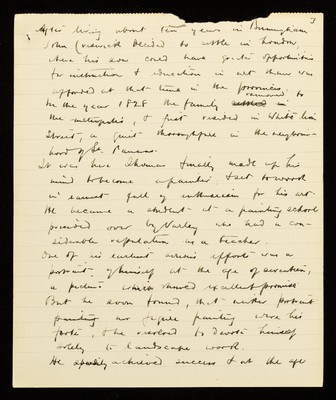 3
After living about ten years in Birmingham
John Creswick decided to settle in London,
where his son could have greater opportunities
for instruction & education in art than was
afforded at that time in the provinces
In the year 1828 the family removed to
the metropolis, & first resided in White Lion
Street, a quiet thoroughfare in the neighbour-
hood of St. Pancras.
It was here Thomas finally made up his
mind to become a painter, & set to work
in earnest full of enthusiasm for his art.
He became a student at a painting school
presided over by Varley who had a con-
siderable reputation as a teacher.
One of his earliest serious efforts was a
portrait, of himself at the age of seventeen,
a picture which showed excellent promise
But he soon found, that neither portrait
painting nor figure painting were his
forte, & he resolved to devote himself
solely to landscape work.
He speedily achieved success & at the age